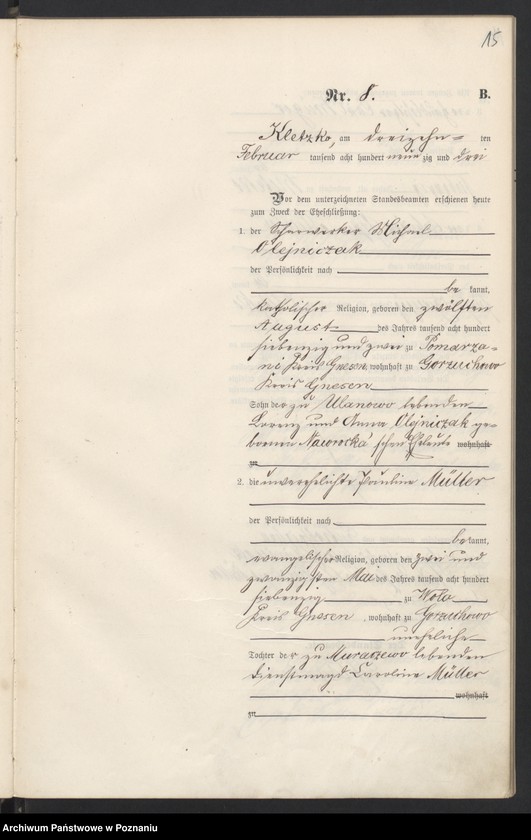 15
Nr. 8. B.
Kletzko, am dreizehn= ten
Februar tausend acht hundert neun zig und drei
Vor dem unterzeichneten Standesbeamten erschienen heute
zum Zweck der Eheschließung:
1. der Scharwerker Michael
Olejniczak
der Persönlichkeit nach
be kannt,
katholischer Religion, geboren den zwölften
August des Jahres tausend acht hundert
siebenzig und zwei zu Pomarza-
ni Kreis Gnesen, wohnhaft zu Gorzuchowo
Kreis Gnesen
Sohn der zu Ulanowo lebenden
Lorenz und Anna Olejniczak ge-
borenen Nawrocka'schen Eheleute wohnhaft
zu
2. die unverehelichte Pauline Müller
der Persönlichkeit nach
be kannt,
evangelischer Religion, geboren den zwei und
zwanzigsten Mai des Jahres tausend acht hundert
siebenzig zu Wola
Kreis Gnesen, wohnhaft zu Gorzuchowo
uneheliche
Tochter der zu lebenden
Dienstmagd Caroline Müller
wohnhaft
zu
Archiwum Państwowe w Poznaniu